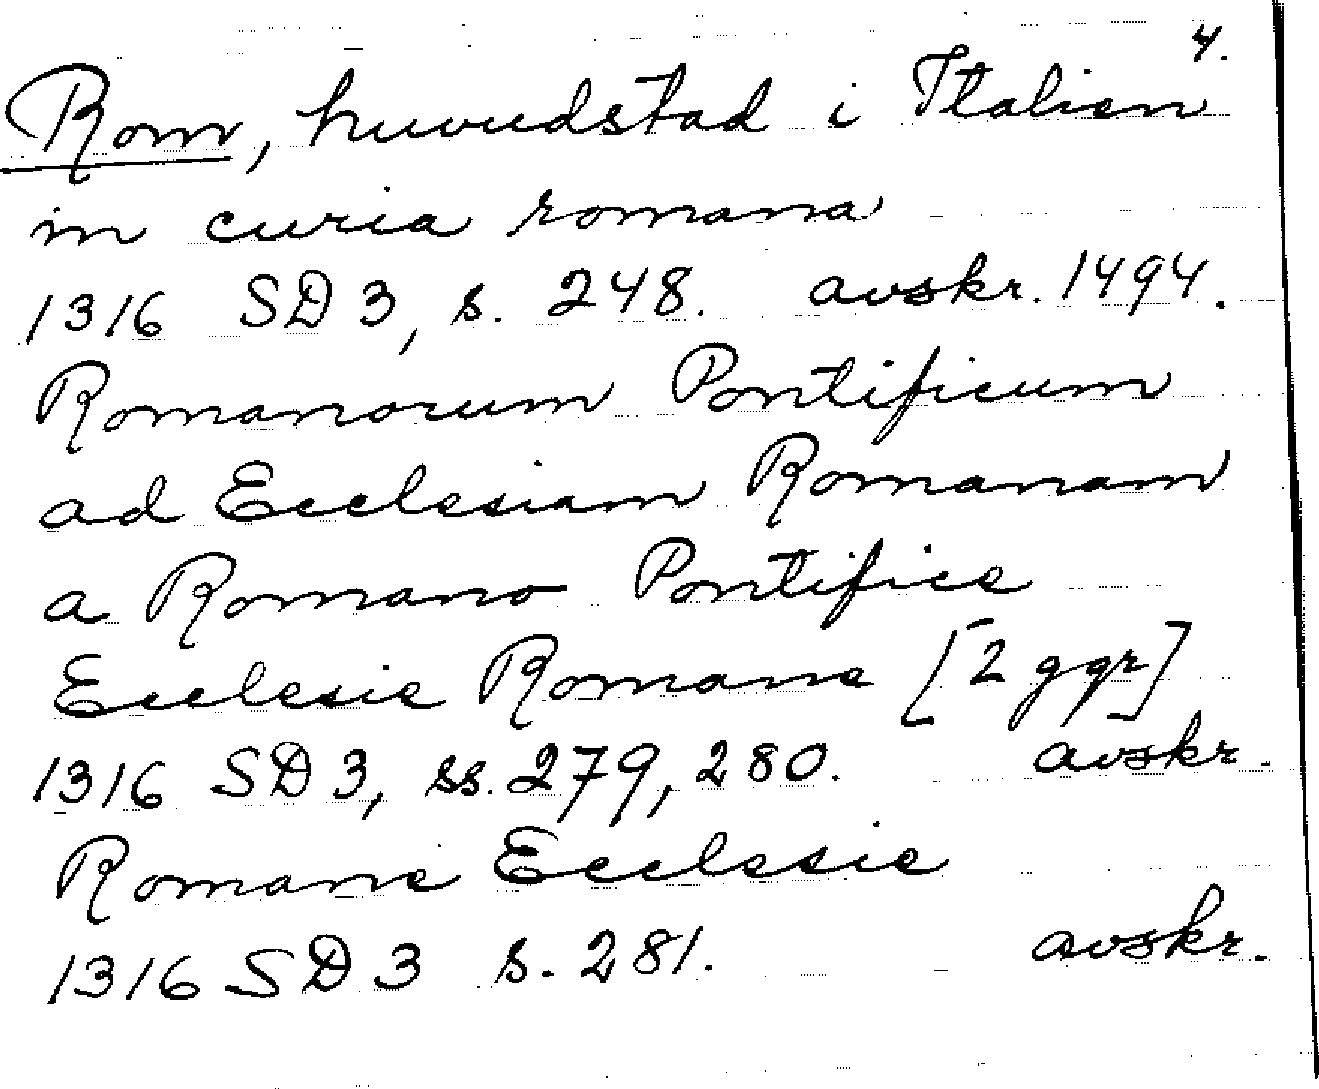 4.
Rom, huvudstad i Italien
in curia romana
1316 SD 3, s. 248. avskr. 1494.
Romanorum Pontificum
ad Ecclesiam Romanam
a Romano Pontifice
Ecclesie Romane [2 ggr]
1316 SD 3, ss. 279, 280. avskr.
Romane Ecclesie
1316 SD 3 s. 281. avskr.